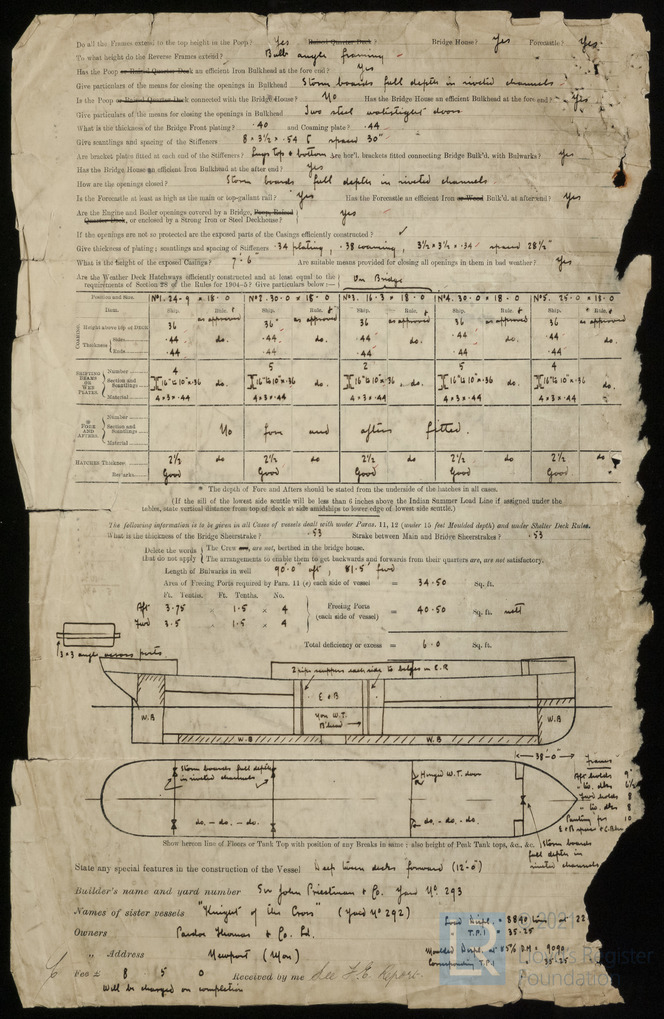 Do all the Frames extend to the top height in the Poop? Yes Raised Quarter Deck? Bridge House? Yes Forecastle? Yes
To what height do the Reverse Frames extend? Bulb angle framing
Has the Poop or Raised Quarter Deck an efficient Iron Bulkhead at the fore end? Yes
Give particulars of the means for closing the openings in Bulkhead Storm boards full depth in riveted channels
Is the Poop or Raised Quarter Deck connected with the Bridge House? No Has the Bridge House an efficient Bulkhead at the fore end? Yes
Give particulars of the means for closing the openings in Bulkhead Two steel watertight doors
What is the thickness of the Bridge Front plating? .40 and Coaming plate? .44
Give scantlings and spacing of the Stiffeners 8 × 3½ × .54 spaced 30"
Are bracket plates fitted at each end of the Stiffeners? Lugs top & bottom Are hor'l. brackets fitted connecting Bridge Bulk'd. with Bulwarks? Yes
Has the Bridge House an efficient Iron Bulkhead at the after end? Yes
How are the openings closed? Storm boards full depth in riveted channels
Is the Forecastle at least as high as the main or top-gallant rail? Yes Has the Forecastle an efficient Iron or Wood Bulk'd. at after end? Yes
Are the Engine and Boiler openings covered by a Bridge, Poop, Raised
Quarter Deck, or enclosed by a Strong Iron or Steel Deckhouse? Yes
If the openings are not so protected are the exposed parts of the Casings efficiently constructed? ✓
Give thickness of plating; scantlings and spacing of Stiffeners .34 plating, .38 coaming, 3½ × 3½ × .34 spaced 28½"
What is the height of the exposed Casings? 7'-6" Are suitable means provided for closing all openings in them in bad weather? Yes
Are the Weather Deck Hatchways efficiently constructed and at least equal to the
requirements of Section 28 of the Rules for 1904-5? Give particulars below:— On Bridge
Position and Size. No1. 24.9 × 18.0 No2. 30.0 × 18.0 No3. 16.3 × 18.0 No4. 30.0 × 18.0 No5. 25.0 × 18.0
Item. Ship. Rule. Ship. Rule. Ship. Rule. Ship. Rule. Ship. Rule.
COAMING Height above top of DECK 36 as approved 36 as approved 36 as approved 36 as approved 36 as approved
Thickness Sides .44 do. .44 do. .44 do. .44 do. .44 do.
Ends .44 .44 .44 .44 .44
SHIFTING BEAMS OR WEB PLATES Number 4 5 2 5 4
Section and Scantlings 16" to 10" × .36 do. 16" to 10" × .36 do. 16" to 10" × .36 do. 16" to 10" × .36 do. 16" to 10" × .36 do.
Material 4×3×.44 4×3×.44 4×3×.44 4×3×.44 4×3×.44
* FORE AND AFTERS Number
Section and Scantlings No fore and afters fitted.
Material
HATCHES Thickness 2½ do 2½ do 2½ do 2½ do 2½ do
Remarks Good Good Good Good Good
* The depth of Fore and Afters should be stated from the underside of the hatches in all cases.
(If the sill of the lowest side scuttle will be less than 6 inches above the Indian Summer Load Line if assigned under the
tables, state vertical distance from top of deck at side amidships to lower edge of lowest side scuttle.)
The following information is to be given in all Cases of vessels dealt with under Paras. 11, 12 (under 15 feet Moulded depth) and under Shelter Deck Rules.
What is the thickness of the Bridge Sheerstrake? .53 Strake between Main and Bridge Sheerstrakes? .53
Delete the words that do not apply { The Crew are, are not, berthed in the bridge house.
The arrangements to enable them to get backwards and forwards from their quarters are, are not satisfactory.
Length of Bulwarks in well 90.0' aft, 81.5' fwd
Area of Freeing Ports required by Para. 11 (e) each side of vessel = 34.50 Sq. ft.
Ft. Tenths. Ft. Tenths. No.
Aft 3.75 × 1.5 × 4
Fwd 3.5 × 1.5 × 4
Freeing Ports (each side of vessel) = 40.50 Sq. ft. nett
Total deficiency or excess = 6.0 Sq. ft.
3×3 angle across ports
2 pipe scuppers each side to bilges in E.R
E & B
Non W.T. B'head
W.B
W.B
W.B
W.B
38'-0"
Storm boards full depth
in riveted channels
Hinged W.T. door
do. - do. - do.
do. - do. - do.
Storm boards
full depth in
riveted channels
Frames
Aft holds 9"
" tw. dks 6½
Fwd holds 8
" tw. dks 8
Panting frs 10
Show hereon line of Floors or Tank Top with position of any Breaks in same; also height of Peak Tank tops, &c., &c.
State any special features in the construction of the Vessel Deep tween decks forward (12'-0")
Builder's name and yard number Sir John Priestman & Co. Yard No 293
Names of sister vessels "Knight of the Cross" (Yard No 292)
Owners Pardoe Thomas & Co. Ld.
" Address Newport (Mon)
Load Displ. = 8840 tons at 22
T.P.I 35.25
Moulded Displ. at 85% D.M = 9090
Corresponding T.P.I 35.25
Fee £ 8 5 0 Received by me See F.E. Report
Will be charged on completion
LR
© 2021
Lloyd's Register
Foundation